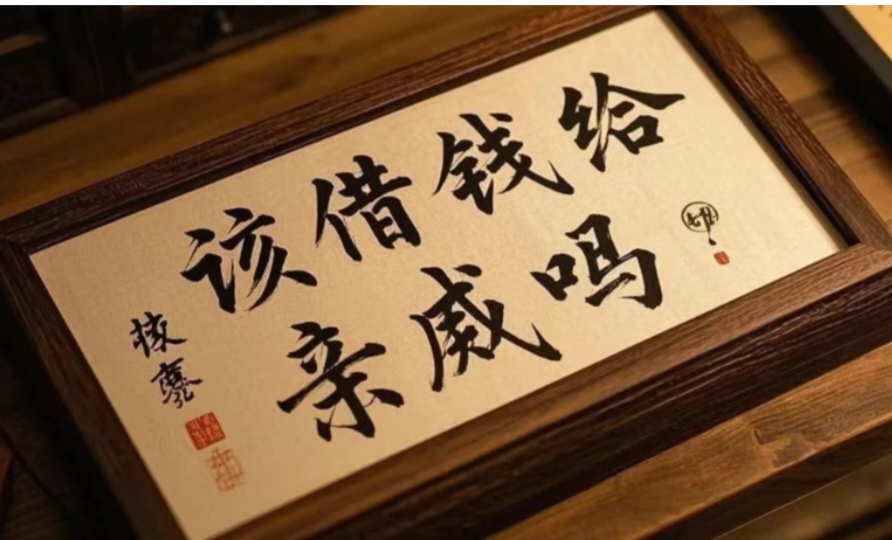 该借钱给
亲威吗